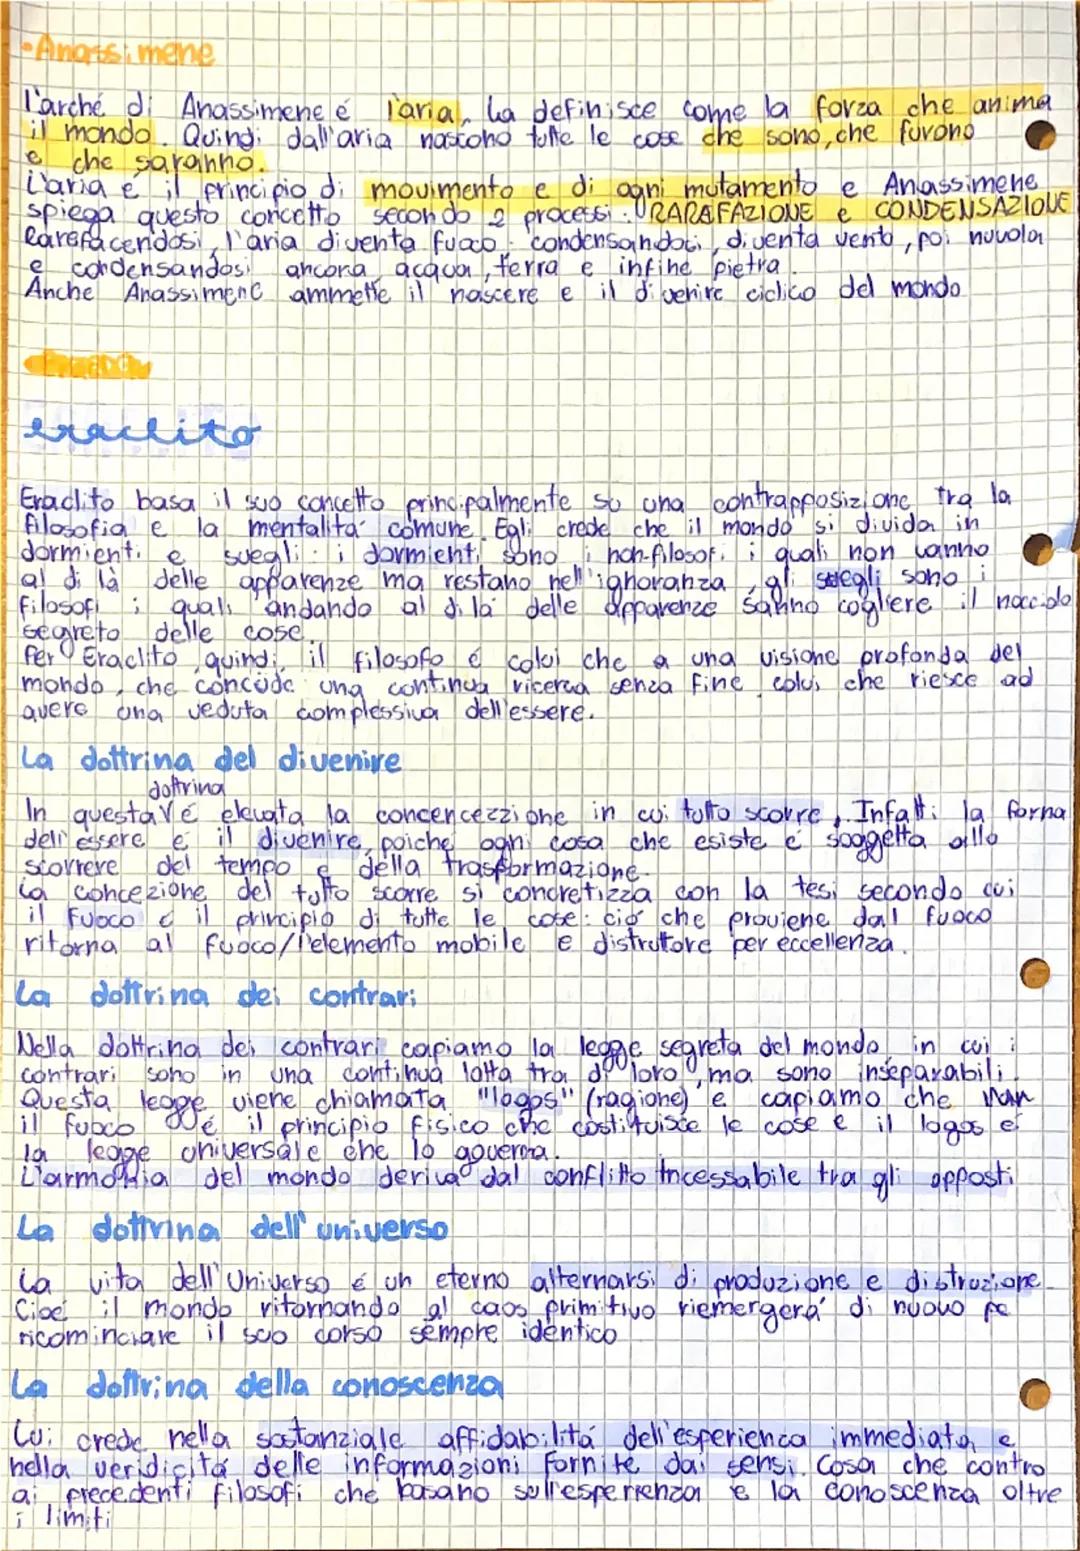 •Anassimene
l'arché di Anassimene é l'aria, La definisce come la forza che anima
il mondo. Quindi dall'aria nascono tutte le cose che sono, che furono
e che saranno.
L'aria é il principio di movimento e di ogni mutamento e Anassimene
spiega questo concetto secondo 2 processi: RAREFAZIONE e CONDENSAZIONE
Rarefacendosi, l'aria diventa fuoco; condensandosi, diventa vento, poi nuvola
e condensandosi ancora, acqua, terra e infine pietra.
Anche Anassimene ammette il nascere e il divenire ciclico del mondo
eraclito
Eraclito basa il suo concetto principalmente su una contrapposizione tra la
filosofia e la mentalitá comune. Egli crede che il mondo si divida in
dormienti e svegli: i dormienti sono i non-filosofi i quali non vanno
al di lá delle apparenze ma restano nell'ignoranza, gli svegli sono i
filosofi i quali andando al di lá delle apparenze sanno cogliere il nocciolo
segreto delle cose.
Per Eraclito, quindi, il filosofo é colui che a una visione profonda del
mondo, che concude una continua ricerca senza fine, colui che riesce ad
avere una veduta complessiva dell'essere.
La dottrina del divenire
dottrina
In questa v é elevata la concencezzione in cui tutto scorre. Infatti la forma
dell'essere é il divenire, poiché ogni cosa che esiste é soggetta allo
scorrere del tempo e della trasformazione.
La concezione del tutto scorre si concretizza con la tesi secondo cui
il fuoco é il principio di tutte le cose: ció che proviene dal fuoco
ritorna al fuoco/l'elemento mobile e distruttore per eccellenza.
La dottrina dei contrari
Nella dottrina dei contrari capiamo la legge segreta del mondo, in cui i
contrari sono in una continua lotta tra di loro, ma sono inseparabili.
Questa legge viene chiamata "logos" (ragione) e capiamo che
il fuoco é il principio fisico che costituisce le cose e il logos é
la legge universale che lo governa.
L'armonia del mondo deriva dal conflitto incessabile tra gli opposti
La dottrina dell'universo
La vita dell'Universo é un eterno alternarsi di produzione e distruzione.
Cioé il mondo ritornando al caos primitivo riemergerá di nuovo pe
ricominciare il suo corso sempre identico
La dottrina della conoscenza
Lui crede nella sostanziale affidabilitá dell'esperienza immediata e
nella veridicitá delle informazioni fornite dai sensi. Cosa che contro
ai precedenti filosofi che basano sull'esperienza e la conoscenza oltre
i limiti